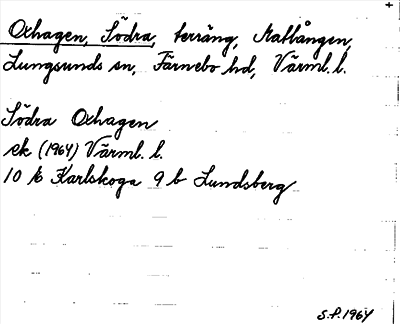 Oxhagen, Södra, terräng, Matlången,
Lungsunds sn, Färnebo hd, Värml. l.
Södra Oxhagen
ek (1964) Värml. l.
10 E Karlskoga 9 b Lundsberg
S.P. 1964